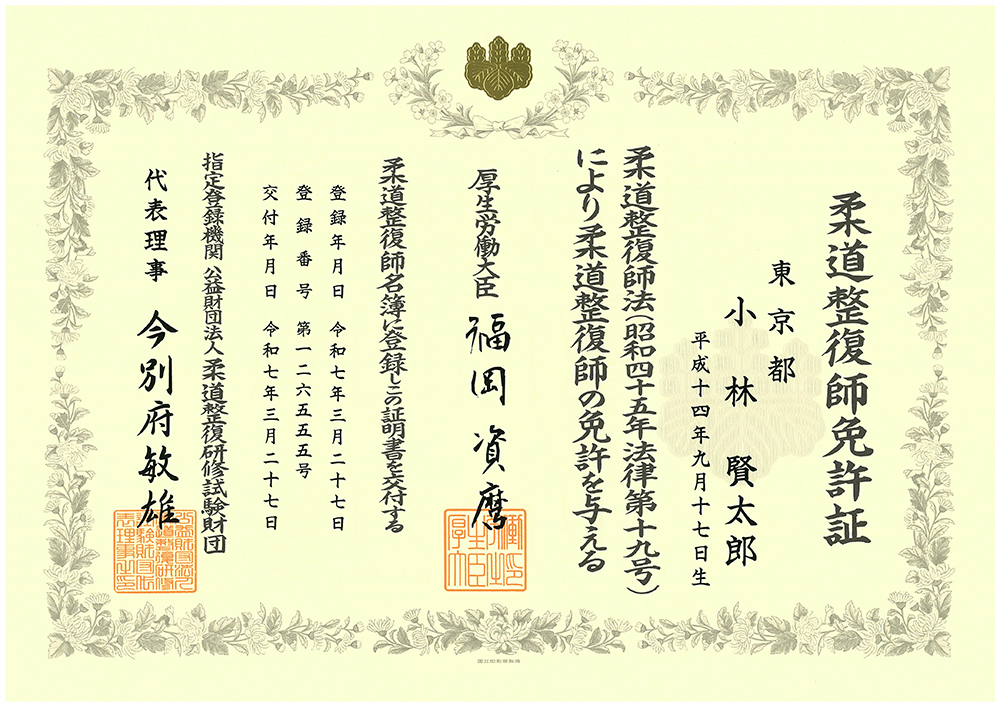 柔道整復師免許証
東京都
小林賢太郎
平成十四年九月十七日生
柔道整復師法(昭和四十五年法律第十九号)
により柔道整復師の免許を与える
厚生労働大臣 福岡資麿
柔道整復師名簿に登録しこの証明書を交付する
登録年月日 令和七年三月二十七日
登録番号 第一二六五五五号
交付年月日 令和七年三月二十七日
指定登録機関 公益財団法人 柔道整復研修試験財団
代表理事 今別府敏雄